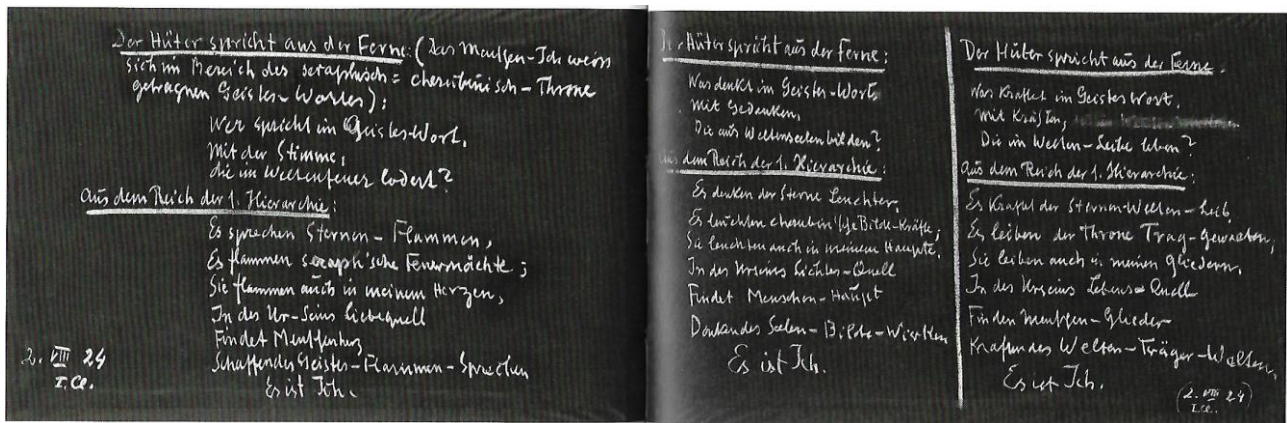 Der Hüter spricht aus der Ferne: (Das Menschen-Ich weiss
sich im Bereich des seraphisch = cherubinisch-Throne
getragnen Geistes-Wortes):
Wer spricht im Geistes-Wort,
Mit der Stimme,
die im Weltenfeuer lodert?
Aus dem Reich der 1. Hierarchie:
Es sprechen Sternen-Flammen,
Es flammen seraph'sche Feuermächte;
Sie flammen auch in meinem Herzen,
In des Ur-Seins Liebequell
Findet Menschenherz
Schaffendes Geistes-Flammen-Sprechen
Es ist Ich.
2. VIII 24
I. Cl.
Der Hüter spricht aus der Ferne:
Was denkt im Geistes-Wort
mit Gedanken,
Die aus Weltenseelen bilden?
Aus dem Reich der 1. Hierarchie:
Es denken der Sterne Leuchter
Es leuchten cherubin'sche Bilde-Kräfte;
Sie leuchten auch in meinem Haupte,
In des Urseins Lichtes-Quell
Findet Menschen-Haupt
Denkendes Seelen-Bilde-Wirken
Es ist Ich.
Der Hüter spricht aus der Ferne:
Was kraftet im Geistes Wort,
mit Kräften,
Die im Welten-Leibe leben?
Aus dem Reich der 1. Hierarchie:
Es kraftet der Sternen-Welten-Leib,
Es leiben der Throne Trag-Gewalten,
Sie leiben auch in meinen Gliedern,
In des Urseins Lebens-Quell
Finden Menschen-Glieder
Kraftendes Welten-Träger-Walten,
Es ist Ich.
(2. VIII 24)
I. Cl.